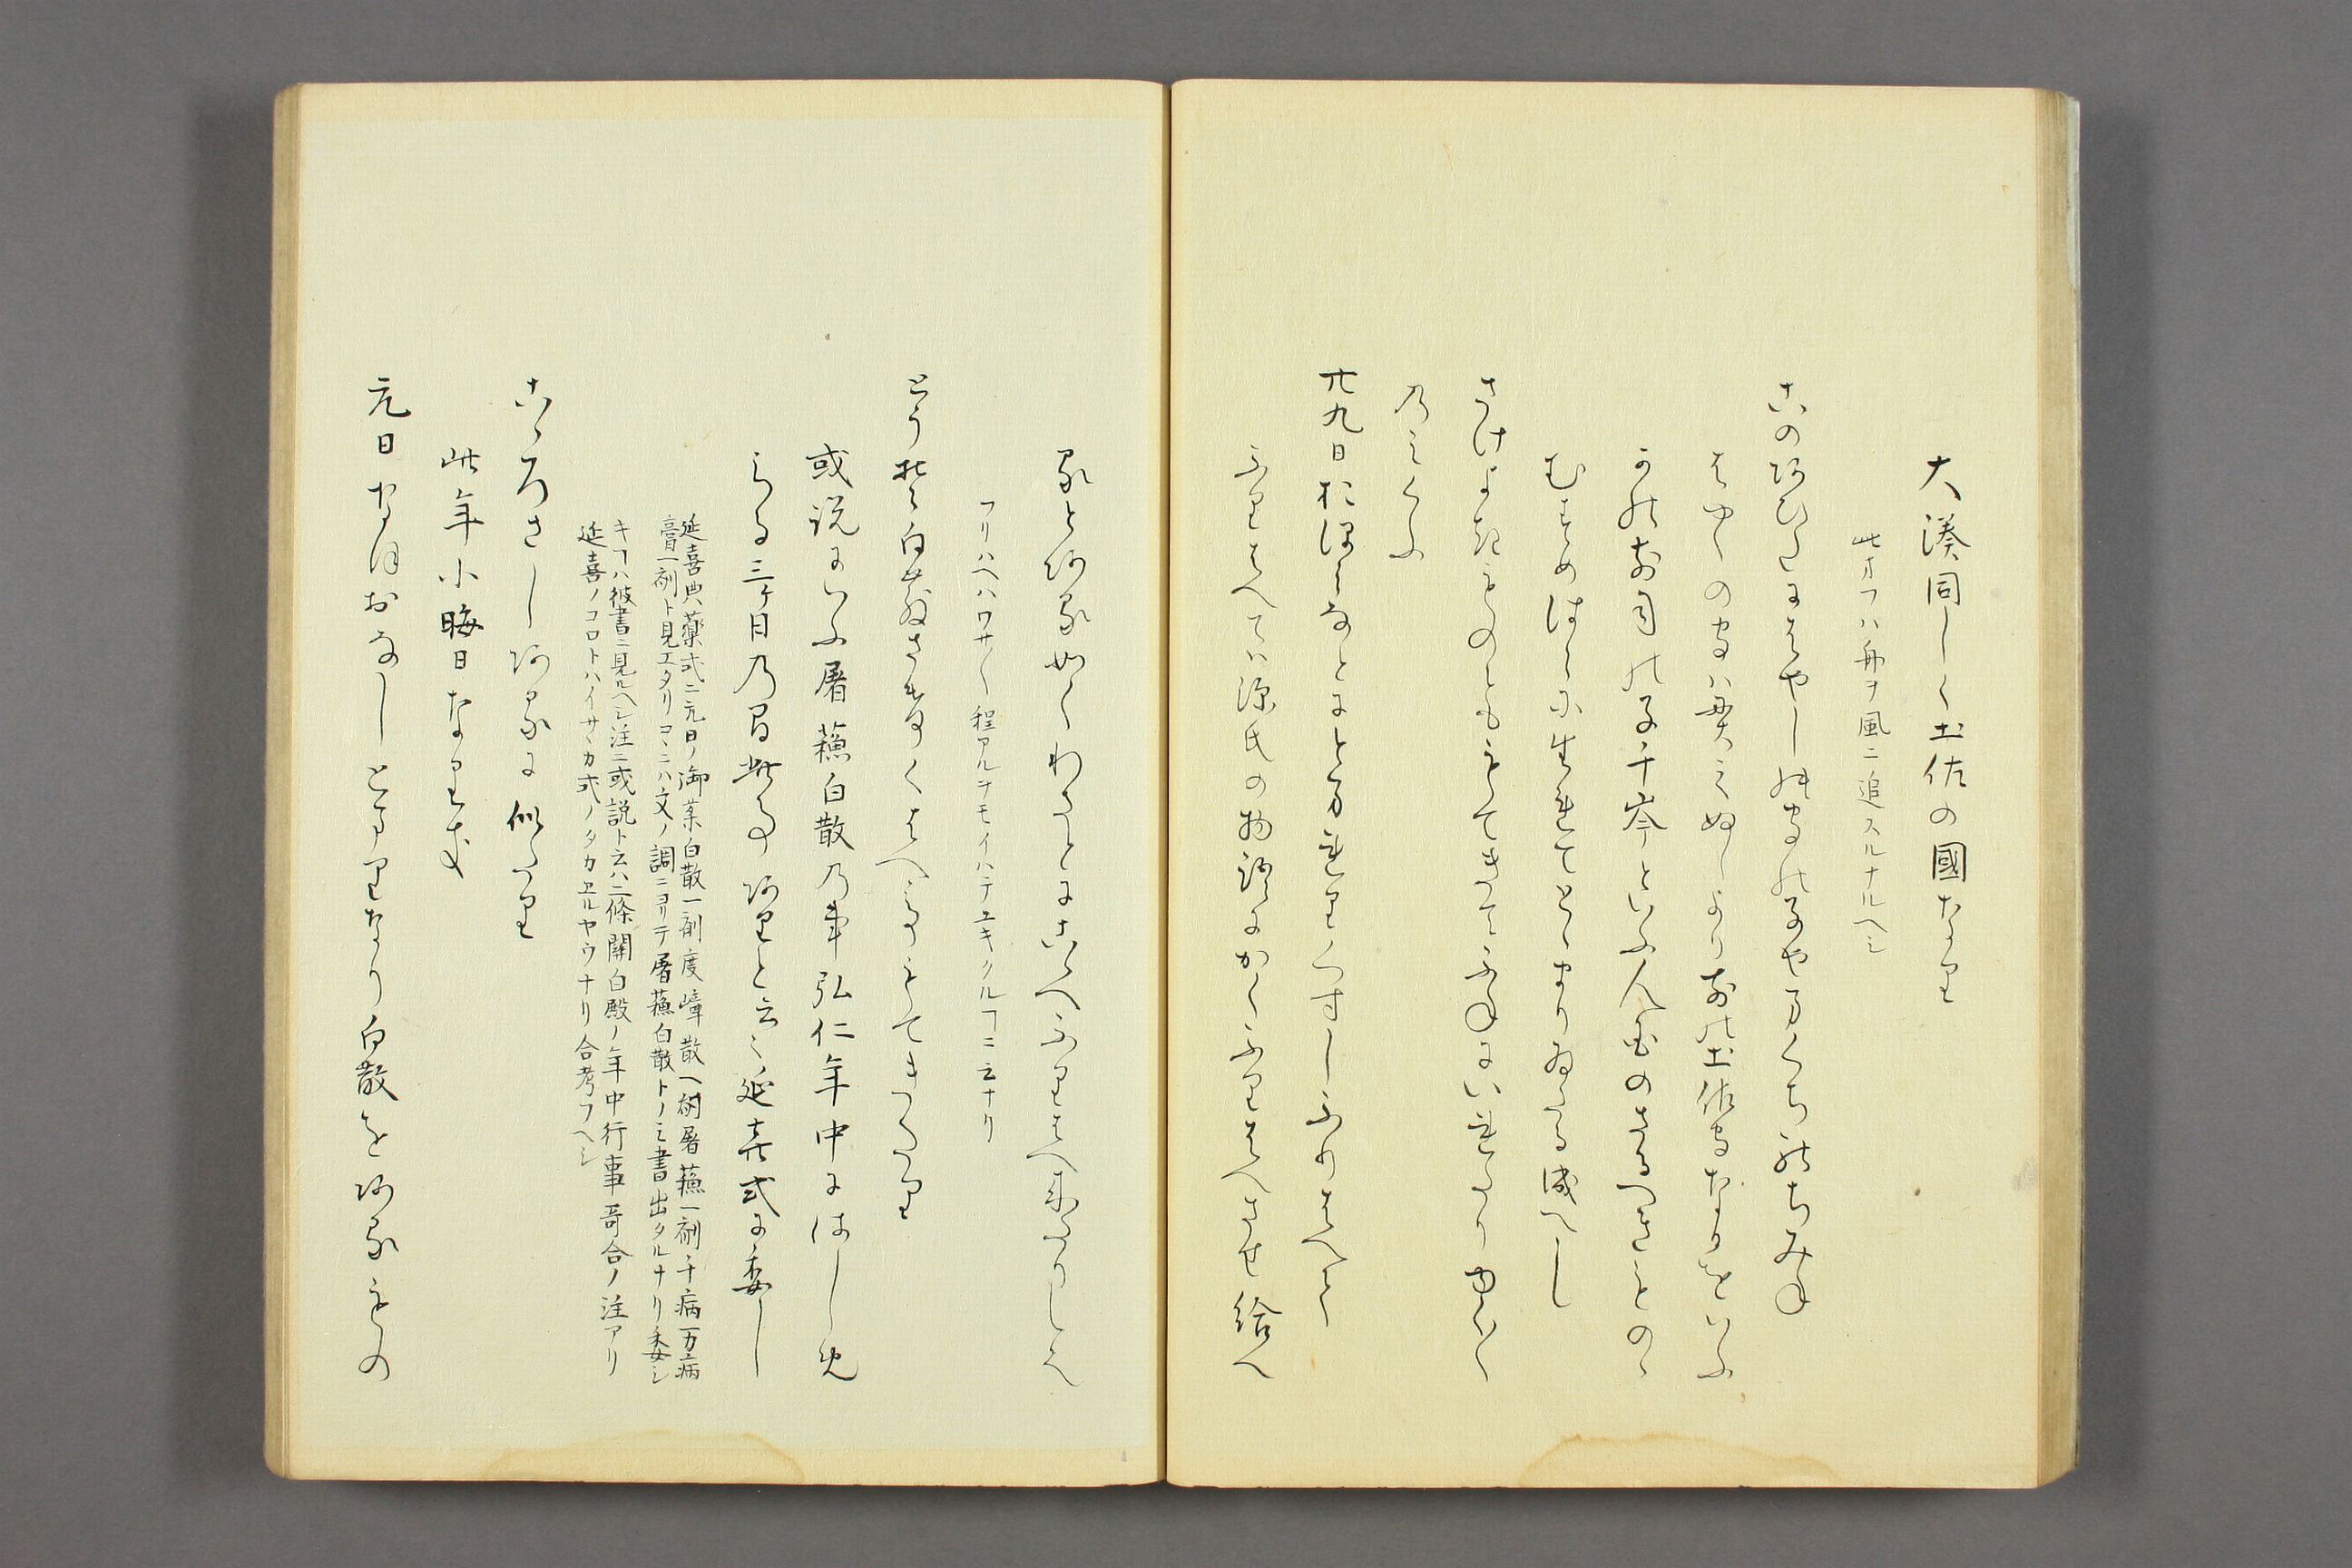 大湊同しく土佐の國なり
此オフハ舟ヲ風ニ追スルナルヘシ
このあひたにはやしの守の子やまくちのちみね
はやしの守は異にぬしより前の土佐守なるをいふ
その前司の子千岑といふ人国のさるつきことの
むすめはらに生れてとゝまりゐたる成へし
さけよきものともゝてきてふねにいれたりゆくゝ
のみくふ
廿九日おほみなとにとまれりくすしふりはへて
ふりはへては源氏の物語にかくふりはへさせ給へ
るとある如くわさとにこゝへふりはへ来りしと也
フリハヘハワサ〳〵程アルヲモイハテユキクルコヲ云ナリ
とうそ白散さけくはへてもてきたり
或説にいふ屠蘇白散の事弘仁年中にはしめ
らる三ヶ日の間此事ありと云々延喜式に委し
延喜典薬式ニ元日ノ御薬白散一剤度嶂散一剤屠蘓一剤千病万病
膏一剤ト見エタリコヽニハ文ノ調ニヨリテ屠蘓白散トノミ書出タルナリ委シ
キコハ彼書ニ見ルヘシ注ニ或説ト云ハ二條関白殿ノ年中行事哥合ノ注アリ
延喜ノコロトハイサヽカ式ノタカヱルヤウナリ合考フヘシ
こゝろさしあるに似たり
此年小晦日なりき
元日なほおなしとまりなり白散をあるもの